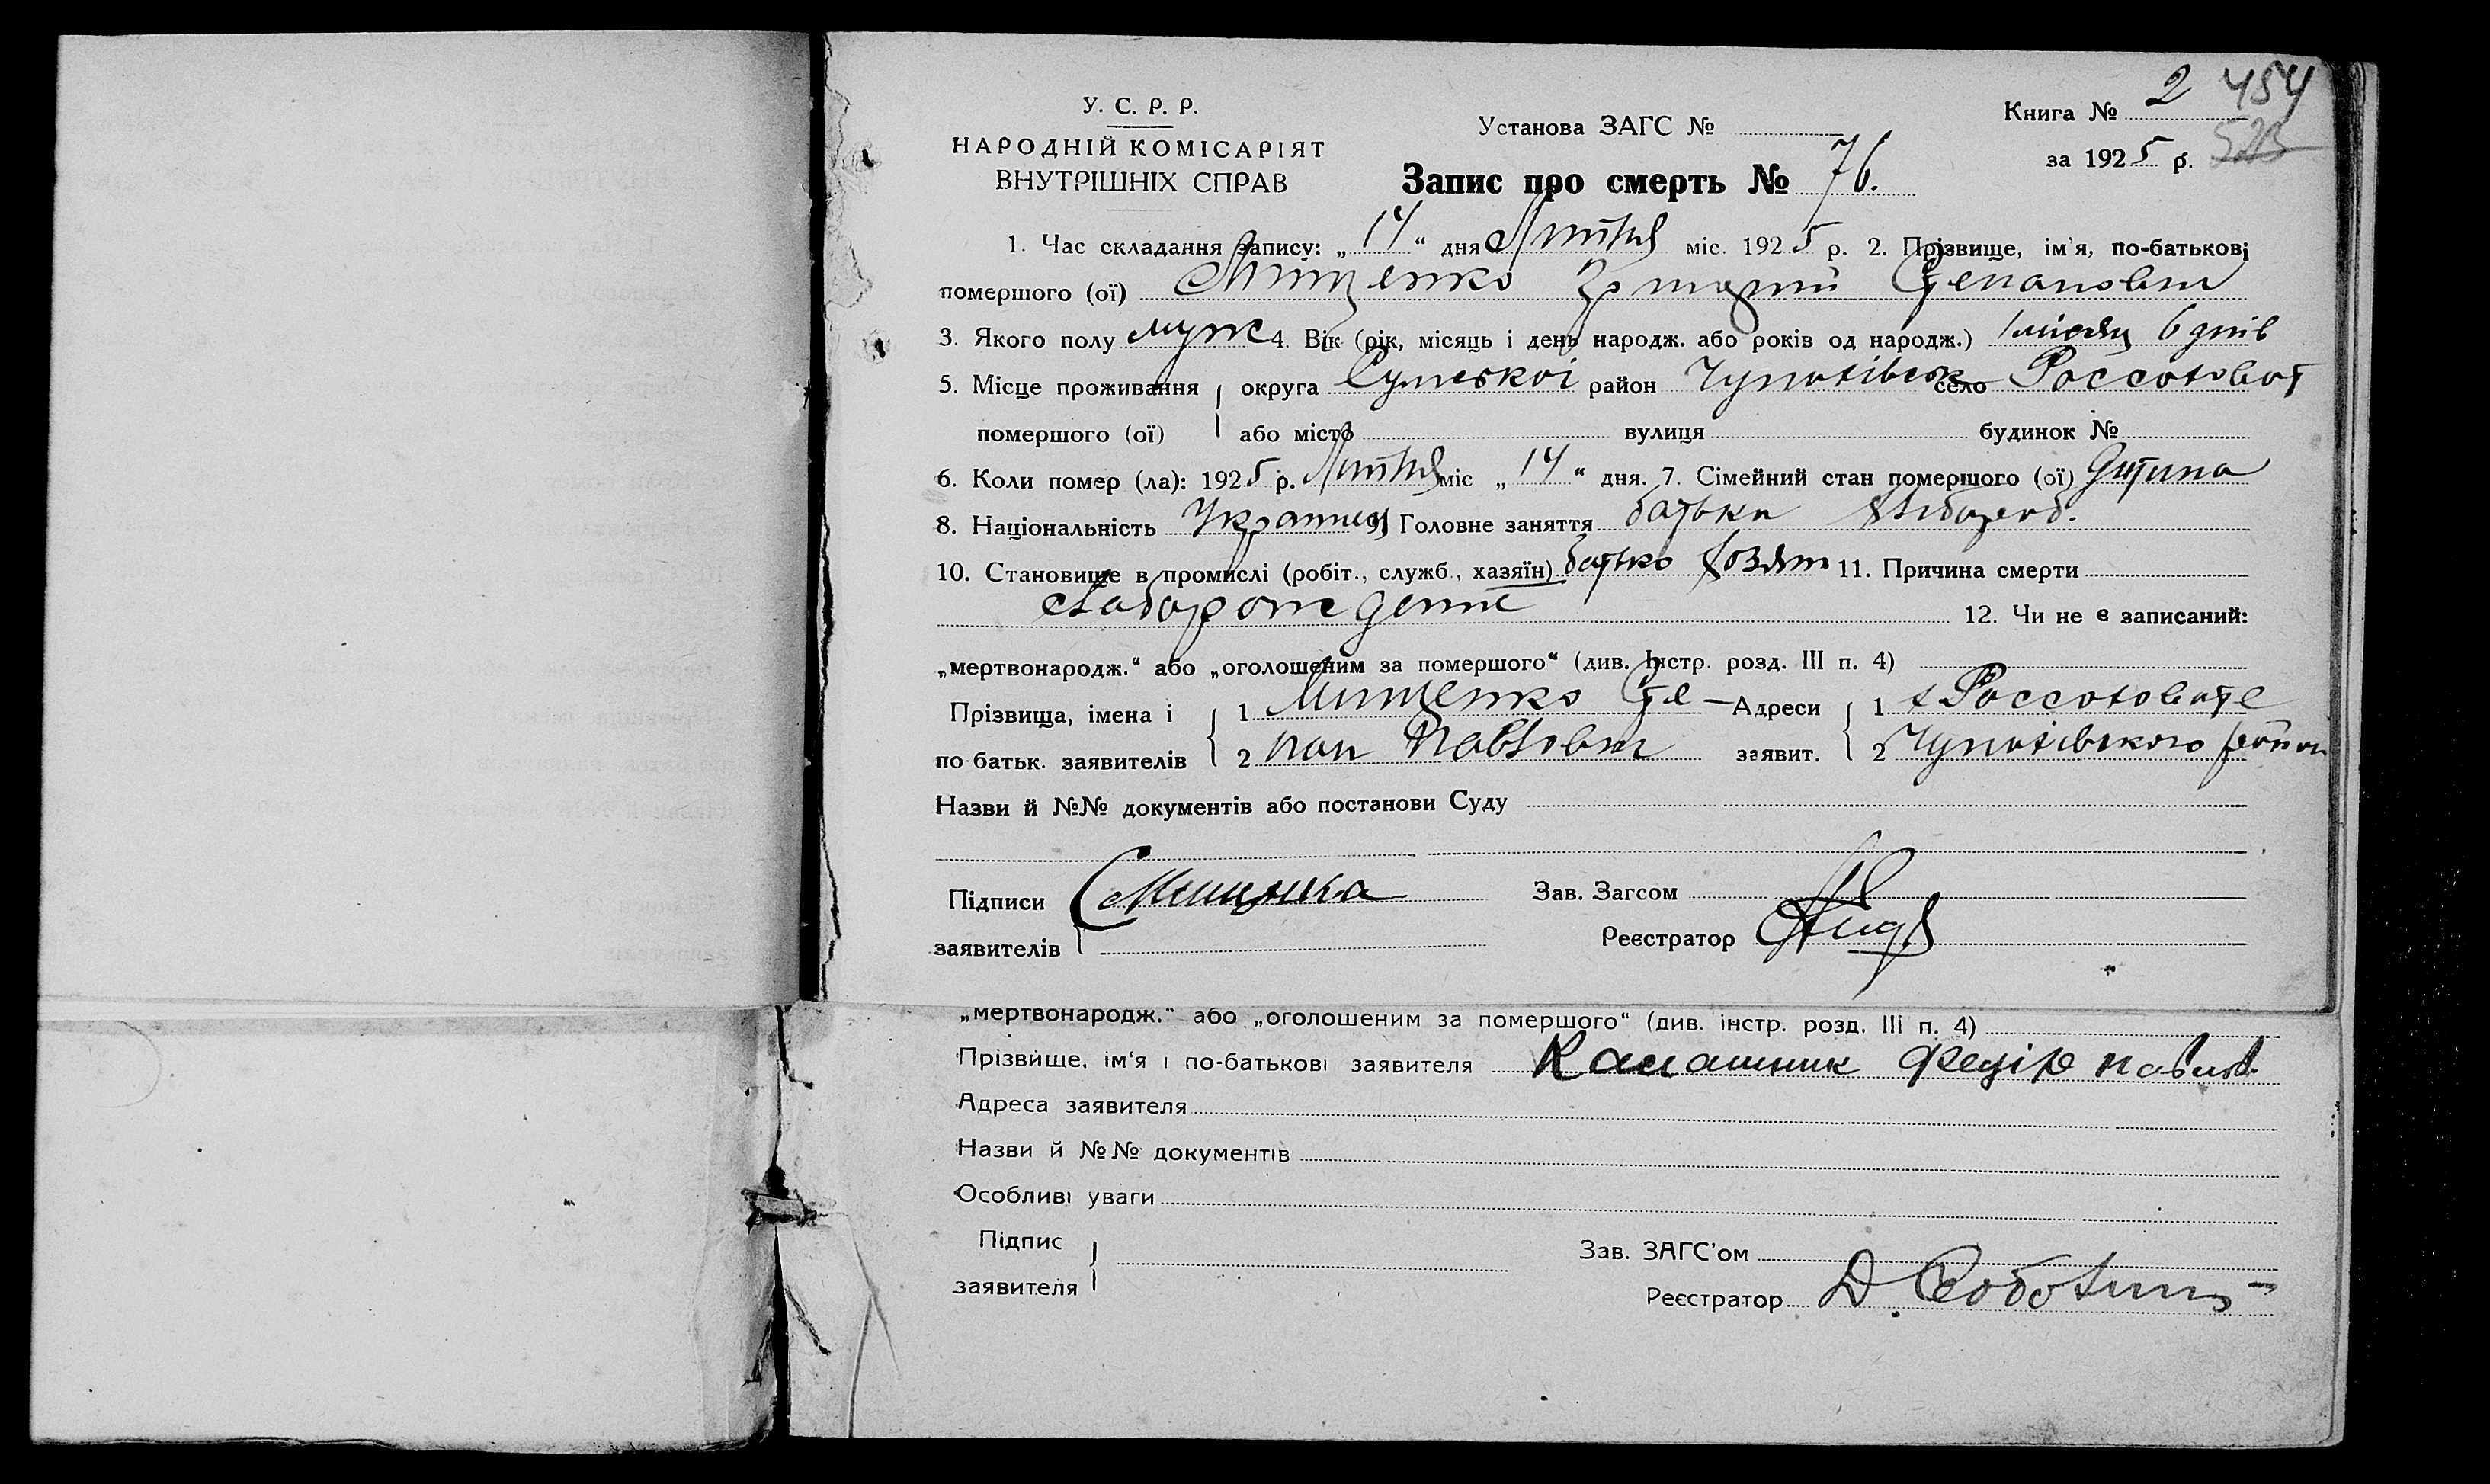 У. С. Р. Р.
НАРОДНІЙ КОМІСАРІЯТ
ВНУТРІШНІХ СПРАВ
Установа ЗАГС №
Запис про смерть № 76.
Книга № 2 454
за 1925 р. 523
1. Час складання запису: „14“ дня Липня міс. 1925 р. 2. Прізвище, ім'я, по-батькові
помершого (ої) Мищенко Степанович
3. Якого полу муж 4. Вік (рік, місяць і день народж. або років од народж.) 1 місяц 6 днів
5. Місце проживання округа Сумської район Чупахівськ село Россоховат
помершого (ої) або місто вулиця будинок №
6. Коли помер (ла): 1925 р. Липня міс „14“ дня. 7. Сімейний стан помершого (ої) Дитина
8. Національність Украинец 9. Головне заняття батька хлібороб.
10. Становище в промислі (робіт., служб., хазяїн) батько хозяин 11. Причина смерти
12. Чи не є записаний:
„мертвонародж.“ або „оголошеним за помершого“ (див. Інстр. розд. III п. 4)
Прізвища, імена і 1 Мищенко Сте— Адреси 1 х Россоховате
по батьк. заявителів 2 пан Павлович заявит. 2 Чупахівского району
Назви й №№ документів або постанови Суду
Підписи С Мищенка Зав. Загсом
заявителів Реєстратор
„мертвонародж.“ або „оголошеним за помершого“ (див. інстр. розд. III п. 4)
Прізвище, ім‘я і по-батькові заявителя Калашник Федір Павлов.
Адреса заявителя
Назви й №№ документів
Особливі уваги
Підпис Зав. ЗАГС'ом
заявителя Реєстратор Д.